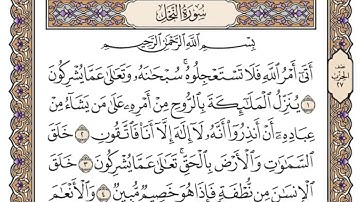 سُورَةُ النَّحْلِ
نصف الحزب ٢٧
بِسْمِ اللَّهِ الرَّحْمَٰنِ الرَّحِيمِ
أَتَىٰٓ أَمْرُ ٱللَّهِ فَلَا تَسْتَعْجِلُوهُ ۚ سُبْحَٰنَهُۥ وَتَعَٰلَىٰ عَمَّا يُشْرِكُونَ
١ يُنَزِّلُ ٱلْمَلَٰٓئِكَةَ بِٱلرُّوحِ مِنْ أَمْرِهِۦ عَلَىٰ مَن يَشَآءُ مِنْ
عِبَادِهِۦٓ أَنْ أَنذِرُوٓا۟ أَنَّهُۥ لَآ إِلَٰهَ إِلَّآ أَنَا۠ فَٱتَّقُونِ ٢ خَلَقَ
ٱلسَّمَٰوَٰتِ وَٱلْأَرْضَ بِٱلْحَقِّ ۚ تَعَٰلَىٰ عَمَّا يُشْرِكُونَ ٣ خَلَقَ
ٱلْإِنسَٰنَ مِن نُّطْفَةٍ فَإِذَا هُوَ خَصِيمٌ مُّبِينٌ ٤ وَٱلْأَنْعَٰمَ